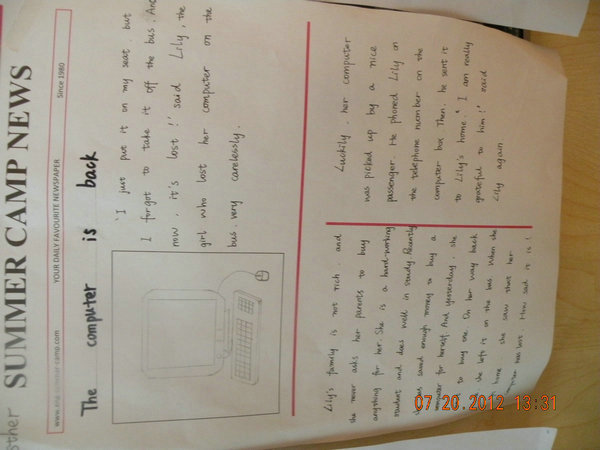 SUMMER CAMP NEWS
YOUR DAILY FAVOURITE NEWSPAPER
Since 1980
The computer is back
'I just put it on my seat but
I forgot to take it off the bus. And
now, it's lost!' said Lily, the
girl who lost her computer on the
bus very carelessly.
Lily's family is not rich, and
she never asks her parents to buy
anything for her. She is a hard-working
student and does well in study. Recently
saved enough money to buy a
computer for herself. And yesterday, she
to buy one. On her way back
she left it on the bus. When she
home she saw that her
was lost. How sad it is!
Luckily, her computer
was picked up by a nice
passenger. He phoned Lily on
the telephone number on the
computer box. Then, he sent it
to Lily's home. 'I am really
grateful to him!' said
Lily again
07.20.2012 13:31